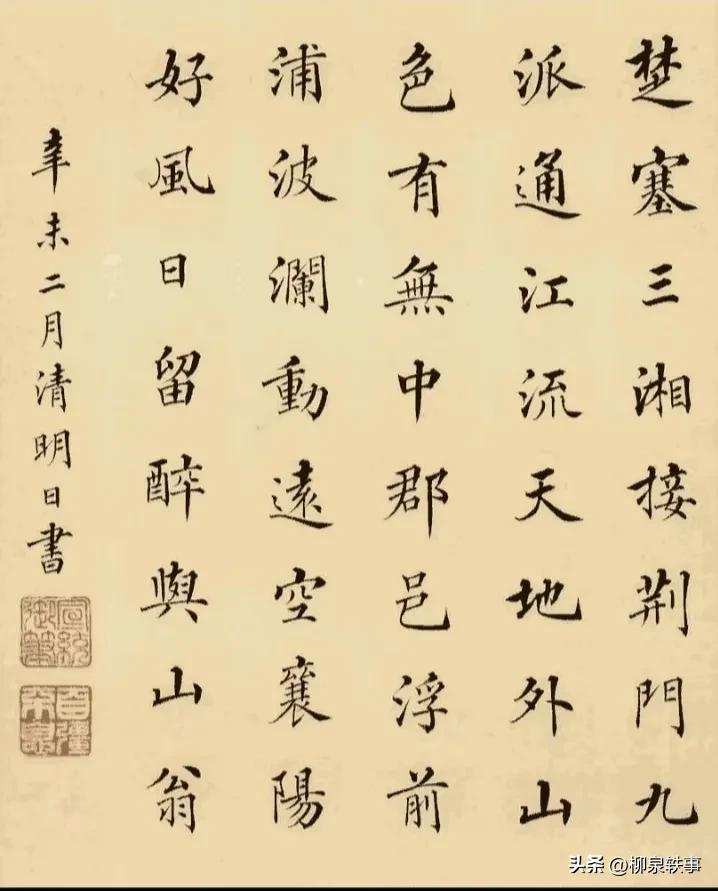 楚塞三湘接荆門九
派通江流天地外山
色有無中郡邑浮前
浦波瀾動遠空襄陽
好風日留醉與山翁
辛未二月清明日書
宣統御筆
自彊不息
头条 @柳泉轶事